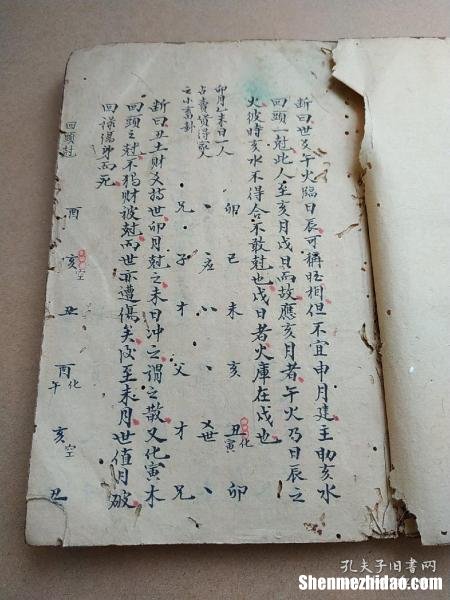 断曰世爻午火臨日辰可稱旺相但不宜申月建主助亥水
回頭一尅此人至亥月戌日而故應亥月者午火乃日辰之
火彼時亥水不得合不敢尅也戌日者火庫在戌也
卯 巳 未 亥 丑化寅 卯
卯月 未日一人
占賣貨得家人
之小畜卦
应 世
兄 子 才 父 才 兄
断曰丑土財爻持世卯月尅之未日冲之謂之散又化寅木
回頭之尅不獨財被尅而世亦遭傷矣後至未月世值月破
因謀傷身而死
回頭尅 酉 亥空 丑 酉化午 亥空 丑
孔夫子旧书网
Shenmezhidao.com